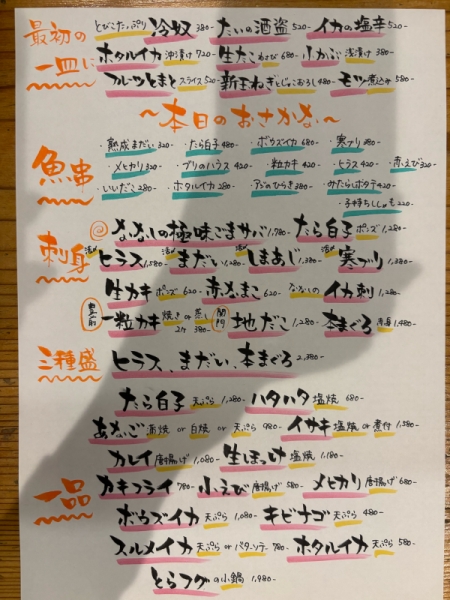 最初の一皿に
とびこたっぷり 冷奴 380- たいの酒盗 520- イカの塩辛 520-
ホタルイカ 沖漬け 720- 生たこ わさび 680- 小かぶ 浅漬け 380-
フルーツとまと スライス 520 新玉ねぎとじゃこおろし 480- モツ煮込み 580-
〜本日のおさかな〜
魚串
・熟成まだい 320- ・たら白子 480- ・ボウズイカ 680- ・寒ブリ 380-
・メヒカリ 320- ・ブリのハラス 420- ・粒カキ 420- ・ヒラス 420- ・赤えび 320-
・いいだこ 280- ・ホタルイカ 280- ・アジのひらき 380- ・みたらしポテタ 420-
・子持ちししゃも 220-
刺身
ななしの極味ごまサバ 1,780- たら白子 ポンズ 1,280-
活〆 ヒラス 1,580- 活〆 まだい 1,480- 活〆 しまあじ 1,380- 寒ブリ 1,380-
生カキ ポンズ 620- 赤なまこ 620- ななしの イカ刺 1,280-
一粒カキ 焼き or 蒸し 2ケ 380- 関門 地だこ 1,280- 本まぐろ 赤身 1,480-
三種盛
ヒラス、まだい、本まぐろ 2,380-
一品
たら白子 天ぷら 1,280- ハタハタ 塩焼 680-
あなご 蒲焼 or 白焼 or 天ぷら 980- イサキ 塩焼 or 煮付 1,580-
カレイ 唐揚げ 1,080- 生ほっけ 塩焼 1,180-
カキフライ 780- 小えび 唐揚げ 580- メヒカリ 唐揚げ 680-
ボウズイカ 天ぷら 1,080- キビナゴ 天ぷら 480-
スルメイカ 天ぷら or バターソテー 780- ホタルイカ 天ぷら 580-
とらフグ の小鍋 1,980-